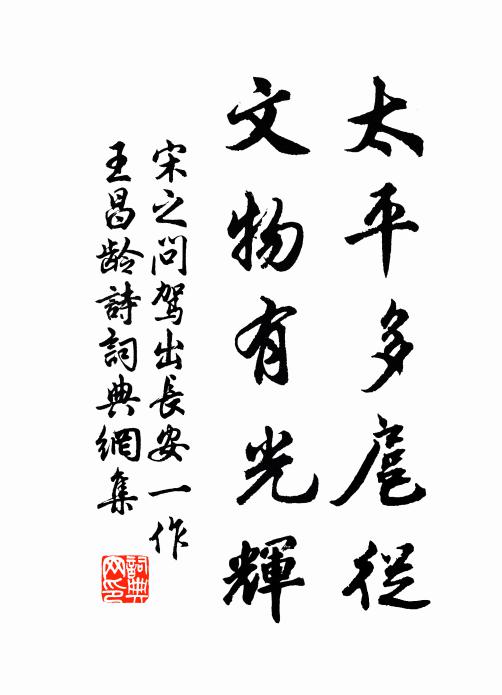 太平多扈從
文物有光輝
宋之问駕出長安一作
王昌龄詩詞典網集
詞典
网印